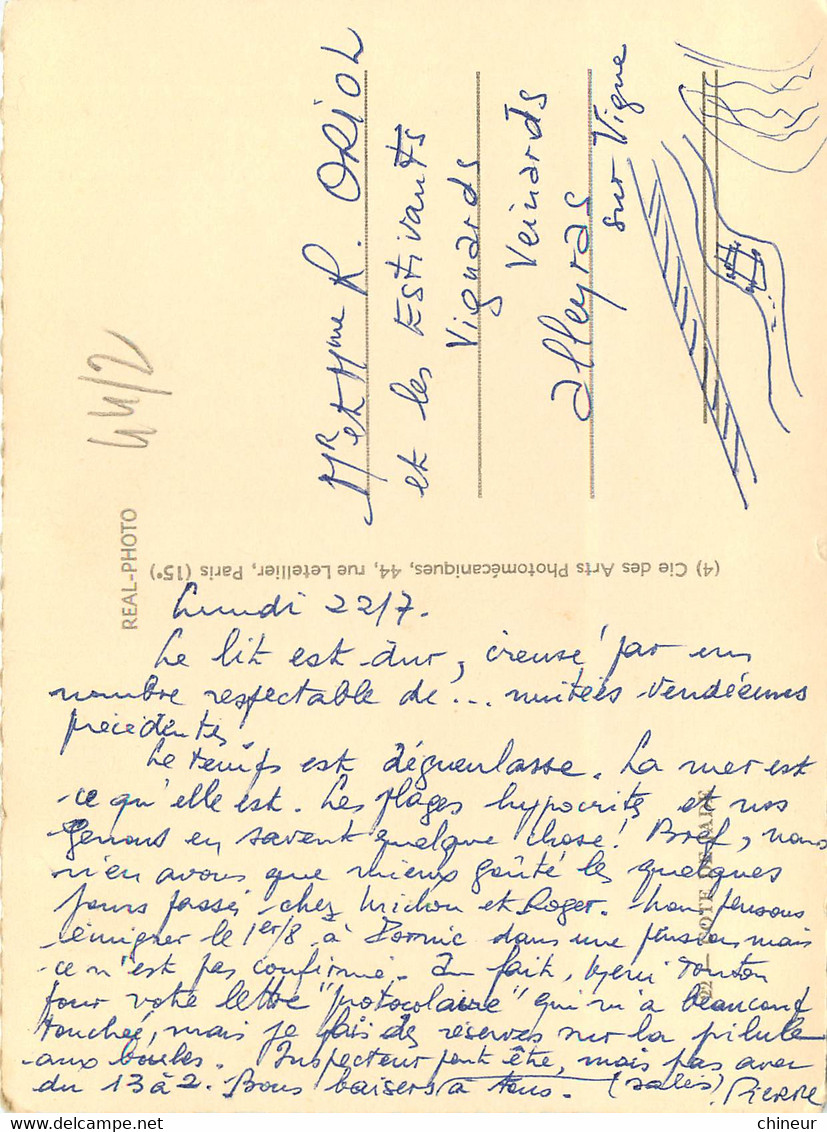 Lundi 22/7.
Le lit est dur, creusé par un
nombre respectable de... nuitées vendéennes
précédentes.
Le temps est dégueulasse. La mer est
ce qu'elle est. Les plages hypocrites et nos
genoux en savent quelque chose! Bref, nous
n'en avons que mieux goûté les quelques
jours passés chez et Roger. Nous pensons
émigrer le 1er/8 à Pornic dans une pension mais
ce n'est pas confirmé. En fait, merci Tonton
pour votre lettre "protocolaire" qui m'a beaucoup
touchée, mais je fais des réserves sur la pilule
aux boules. Inspecteur peut être, mais pas avec
du 13 à 2. Bons baisers à tous. (salés) PIERRE
REAL-PHOTO
(4) Cie des Arts Photomécaniques, 44, rue Letellier, Paris (15e)
22 — COTE DE JADE
44/2
Mr et Mme R. ORIOL
et les Estivants
Vignards
Veinards
Alleyras
sur Vigne
chineur